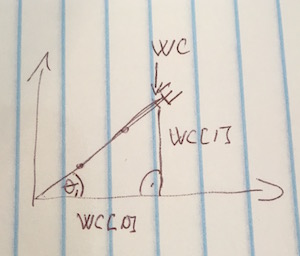 WC
WC[1]
θ₁
WC[0]